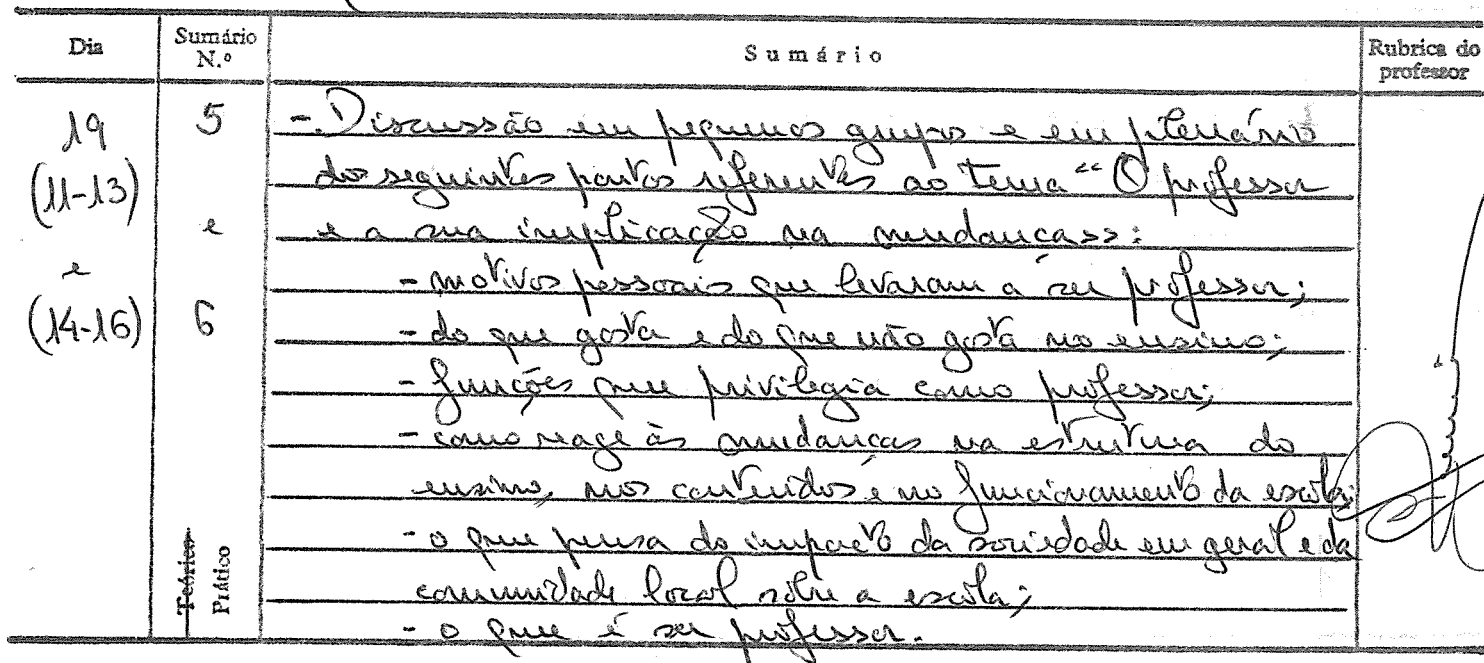 Dia
Sumário N.º
Sumário
Rubrica do professor
19
(11-13)
e
(14-16)
5
e
6
Teórico
Prático
- Discussão em pequenos grupos e em plenário
dos seguintes pontos referentes ao tema "O professor
e a sua implicação na mudança»:
- motivos pessoais que levaram a ser professor;
- do que gosta e do que não gosta no ensino;
- funções que privilegia como professor;
- como reage às mudanças na estrutura do
ensino, nos conteúdos e no funcionamento da escola;
- o que pensa do impacto da sociedade em geral e da
comunidade local sobre a escola;
- o que é ser professor.